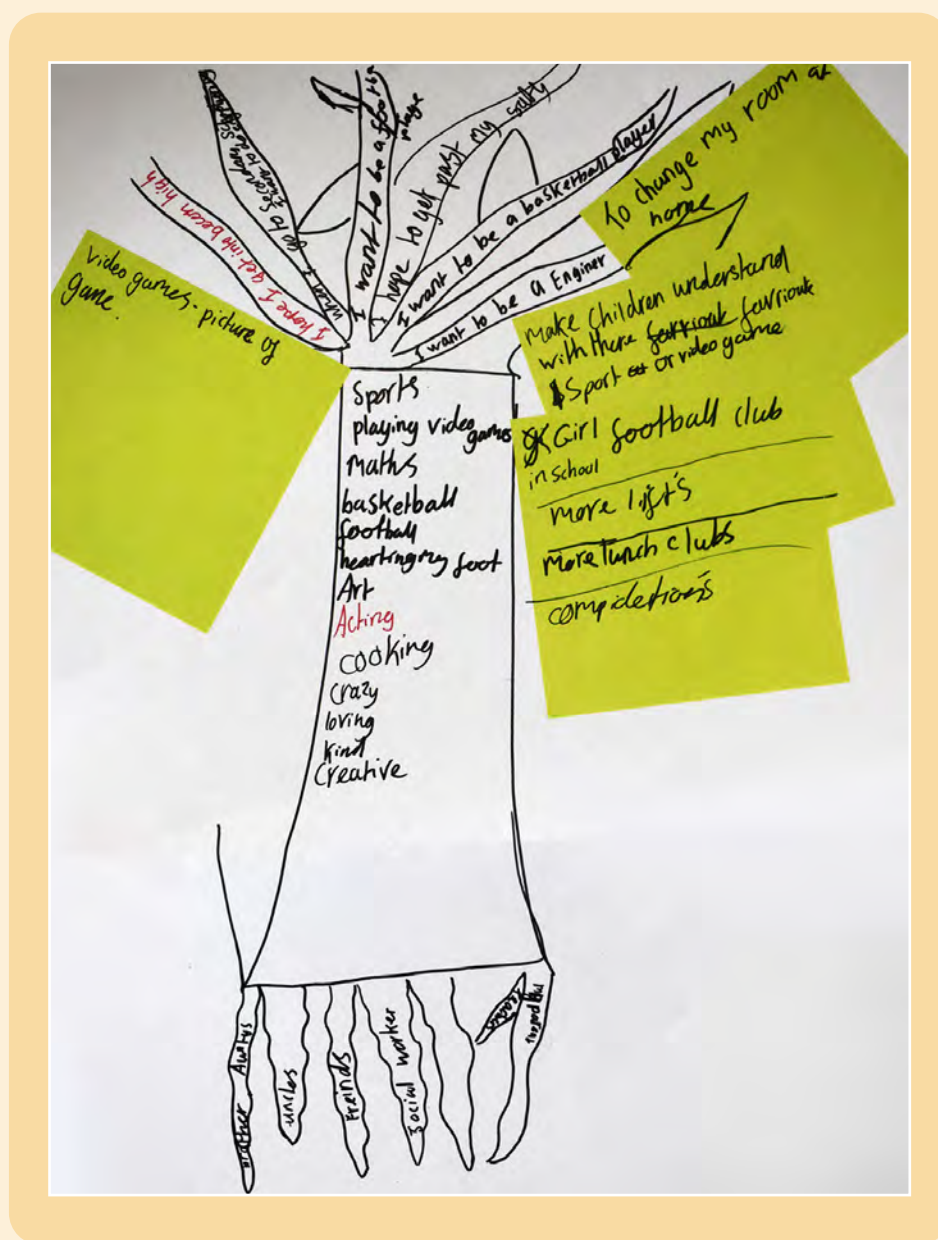 I hope I get into becom high
when I go to Secondary School
I want to be a
I hope to get past my
I want to be a basketball player
I want to be a Enginer
To change my room at
home
video games. picture of
game.
make children understand
with there favriouk
Sport or video game
Girl football club
in school
more lift's
more lunch clubs
compidetion's
Sports
playing video games
Maths
basketball
football
heartingmy foot
Art
Acting
cooking
crazy
loving
kind
Creative
brother Auntys
uncles
Freinds
Social worker